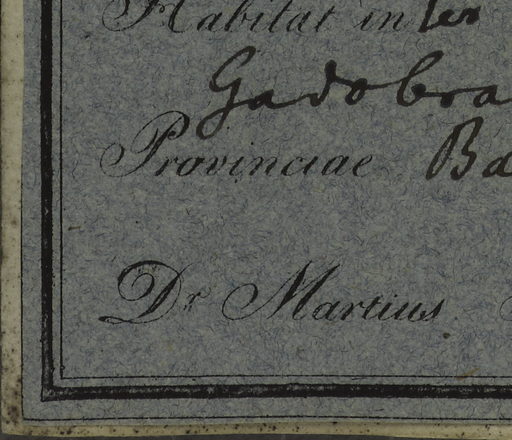 Habitat in ter
Gadobra
Provinciae Ba
Dr Martius